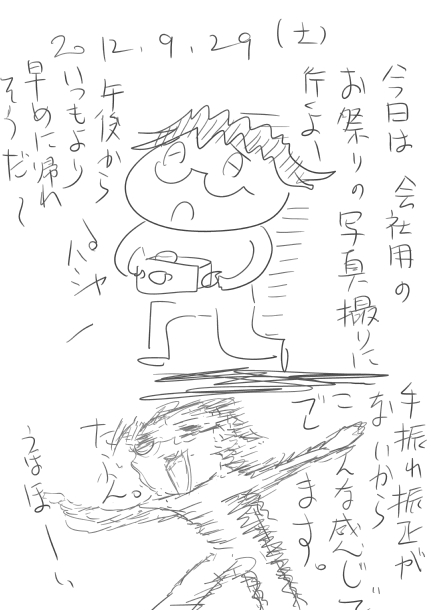 2012.9.29(土)
今日は 会社用の
お祭りの写真撮りに
行くよー
午後から
いつもより
早めに帰れ
そうだ～
パシャ
手振れ補正が
ないから
こんな感じで
です。
たぶん。
うほほーい